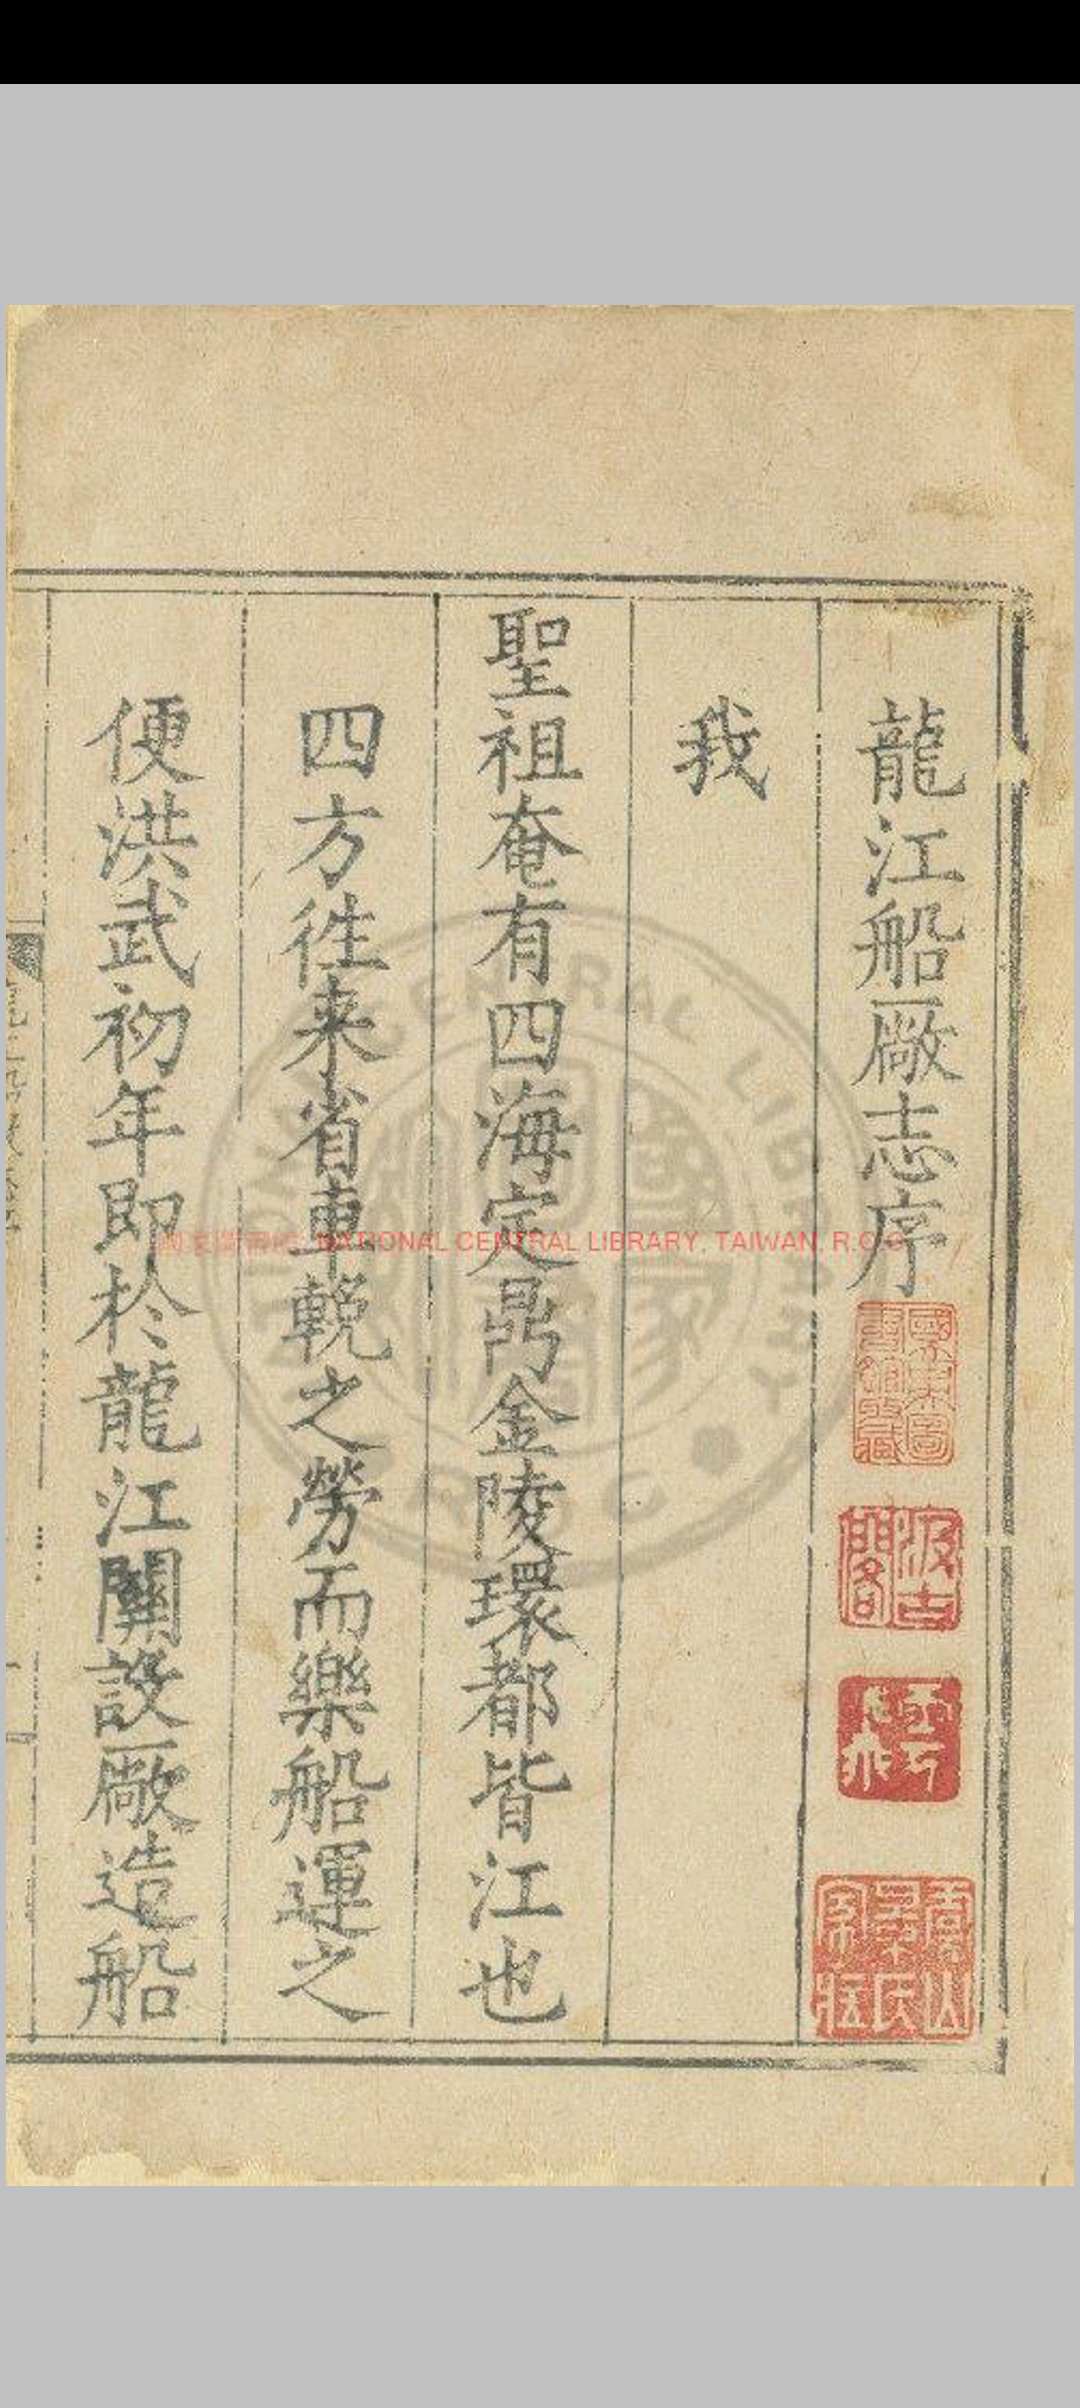 龍江船厰志序
我
聖祖奄有四海定鼎金陵環都皆江也
四方徃来省車輓之勞而樂船運之
便洪武初年即於龍江關設厰造船
國家圖書館藏
汲古閣
NATIONAL CENTRAL LIBRARY, TAIWAN, R.O.C